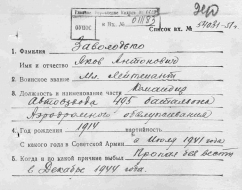 к Вх. № 01183
Список вх. № 54031-51 г
1. Фамилия Заволодько
Имя и отчество Яков Антонович
2. Воинское звание Мл. Лейтенант
3. Должность и наименование части Командир
Автовзвода 495 батальона
Аэродромного обслуживания
4. Год рождения 1914 партийность
С какого года в Советской Армии с Июля 1941 года
5. Когда и по какой причине выбыл Пропал без вести
в Декабре 1944 года.